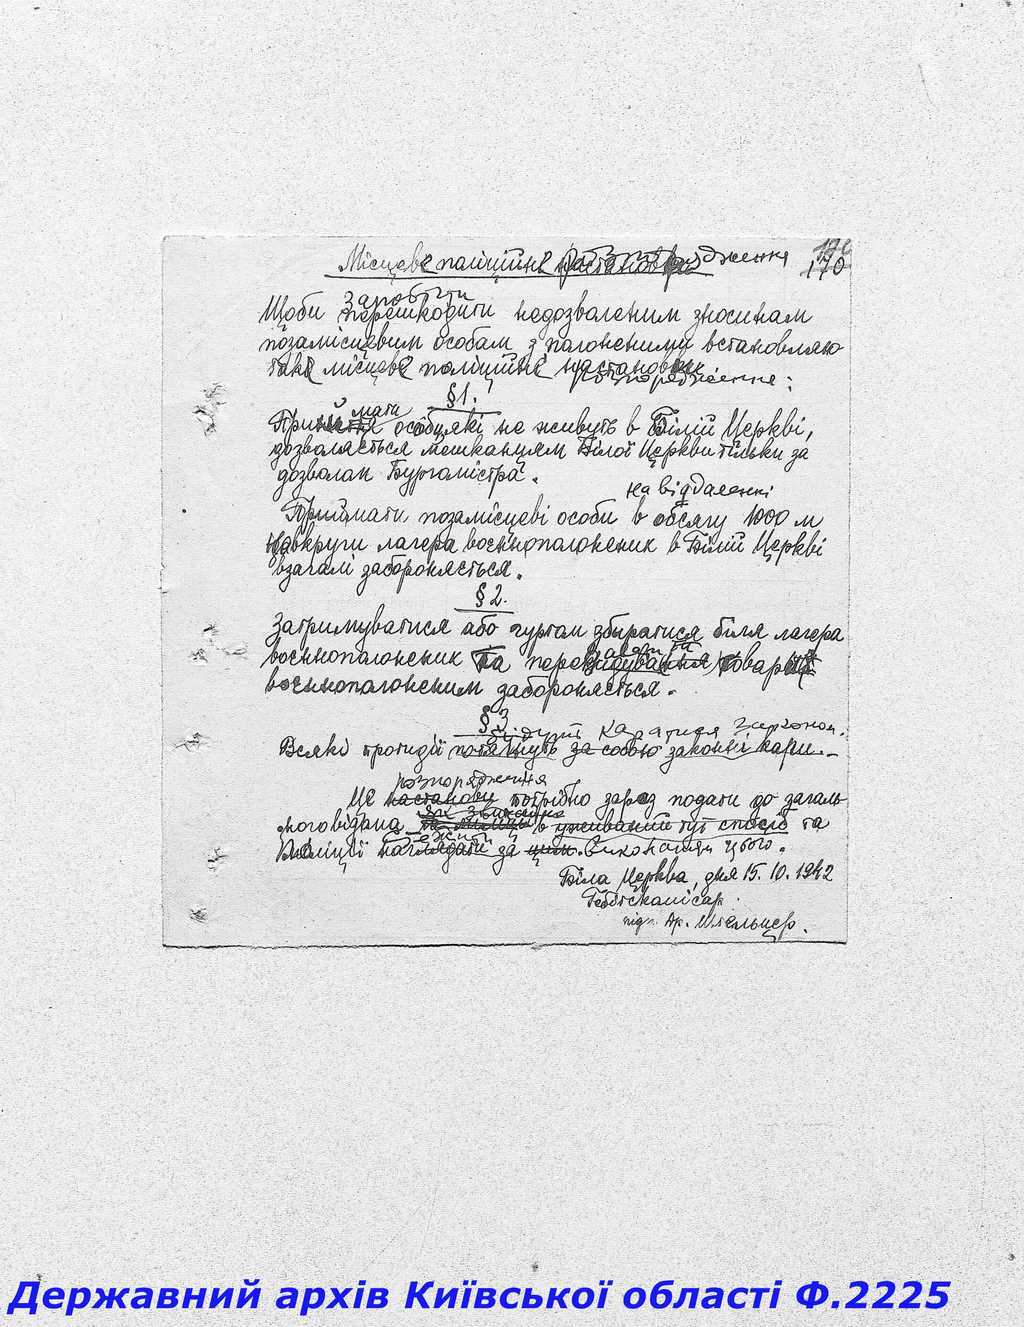 170
Місцеве поліційне розпорядження
Щоби запобігти недозволеним зносинам
позамісцевим особам з полоненими встановляю
таке місцеве поліційне розпорядження:
§1.
Приймати особи, які не живуть в Білій Церкві,
дозваляється мешканцям Білої Церкви тільки за
дозволом Бургомістра.
на віддаленні
Приймати позамісцеві особи в обсягу 1000 м
навкруги лагера военнополонених в Білій Церкві
взагалі забороняється.
§2.
Затримуватися або гуртом збиратися біля лагера
военнополонених та товар
военнополоненим забороняється.
§3
будуть каратися законом.
Всякі протидії потягнуть за собою законні кари.
розпорядження
Це настанову потрібно зараз подати до загаль-
як звичайно
ного відома в уживаний тут спосіб та
поліції наглядати за цим. виконанням цього.
Біла Церква, дня 15. 10. 1942
Гебітскомісар
підп. Др. Штельцер.
Державний архів Київської області Ф.2225